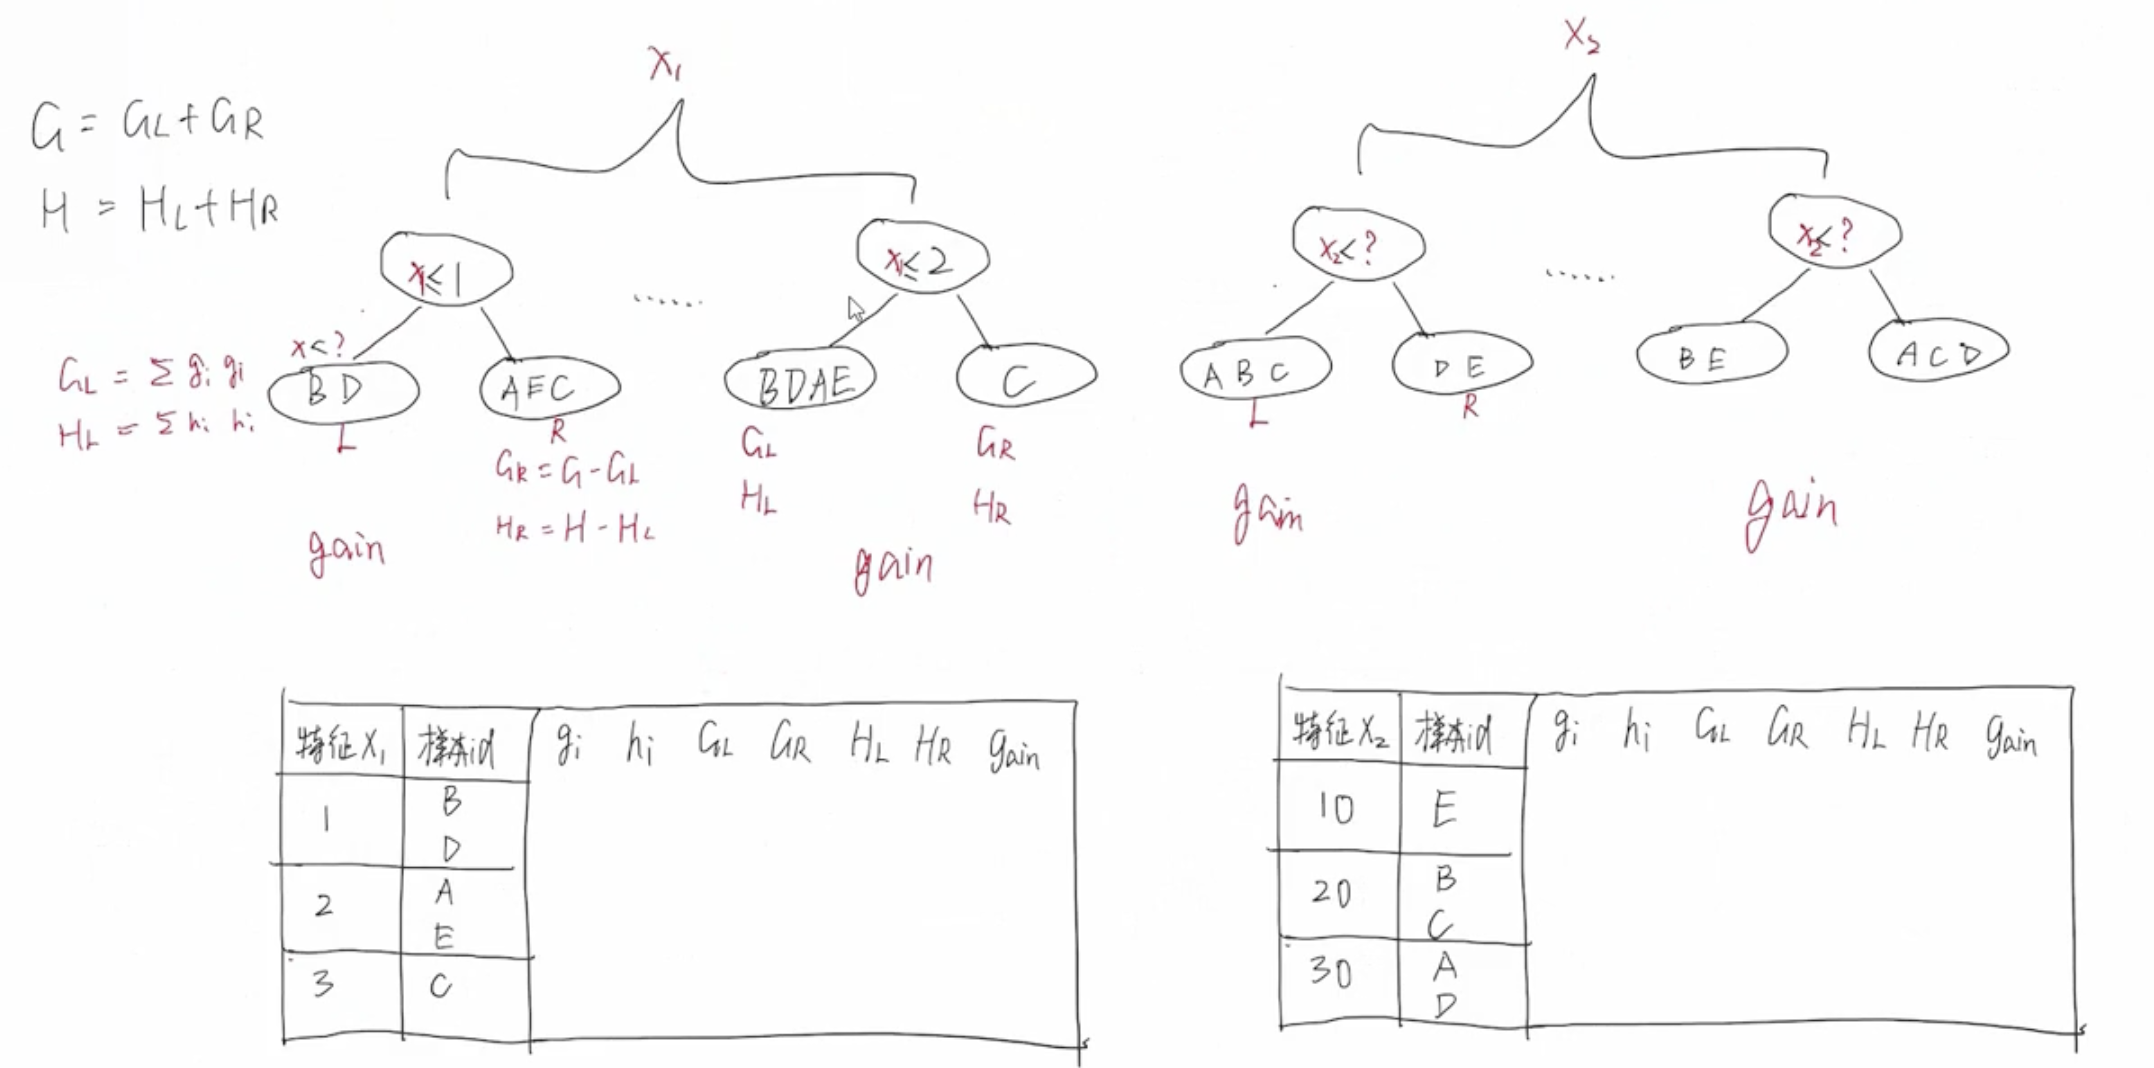 X₁
X₂
G = GL + GR
H = HL + HR
x₁≤1
x₁≤2
x₂<?
x₂<?
.....
.....
x<?
GL = Σ gi gi
HL = Σ hi hi
B D
L
A E C
R
GR = G - GL
HR = H - HL
gain
BDAE
GL
HL
C
GR
HR
gain
A B C
L
D E
R
gain
B E
A C D
gain
特征X₁ 样本id gi hi GL GR HL HR gain
1 B
D
2 A
E
3 C
特征X₂ 样本id gi hi GL GR HL HR gain
10 E
20 B
C
30 A
D